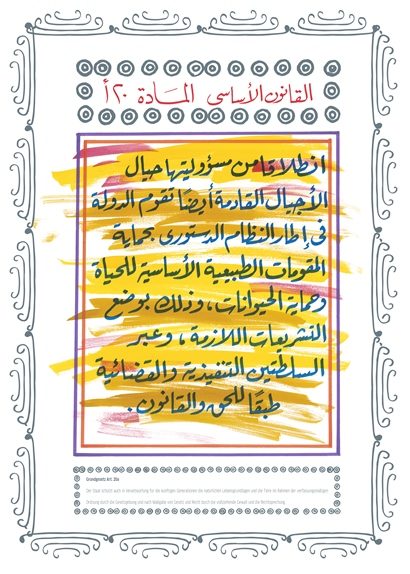 القانون الأساسى المادة ٢٠ أ
انطلاقا من مسؤوليتها حيال
الأجيال القادمة أيضًا تقوم الدولة
فى إطار النظام الدستورى بحماية
المقومات الطبيعية الأساسية للحياة
وحماية الحيوانات، وذلك بوضع
التشريعات اللازمة، وعبر
السلطتين التنفيذية والقضائية
طبقًا للحق والقانون.
Grundgesetz Art. 20a
Der Staat schützt auch in Verantwortung für die künftigen Generationen die natürlichen Lebensgrundlagen und die Tiere im Rahmen der verfassungsmäßigen
Ordnung durch die Gesetzgebung und nach Maßgabe von Gesetz und Recht durch die vollziehende Gewalt und die Rechtsprechung.